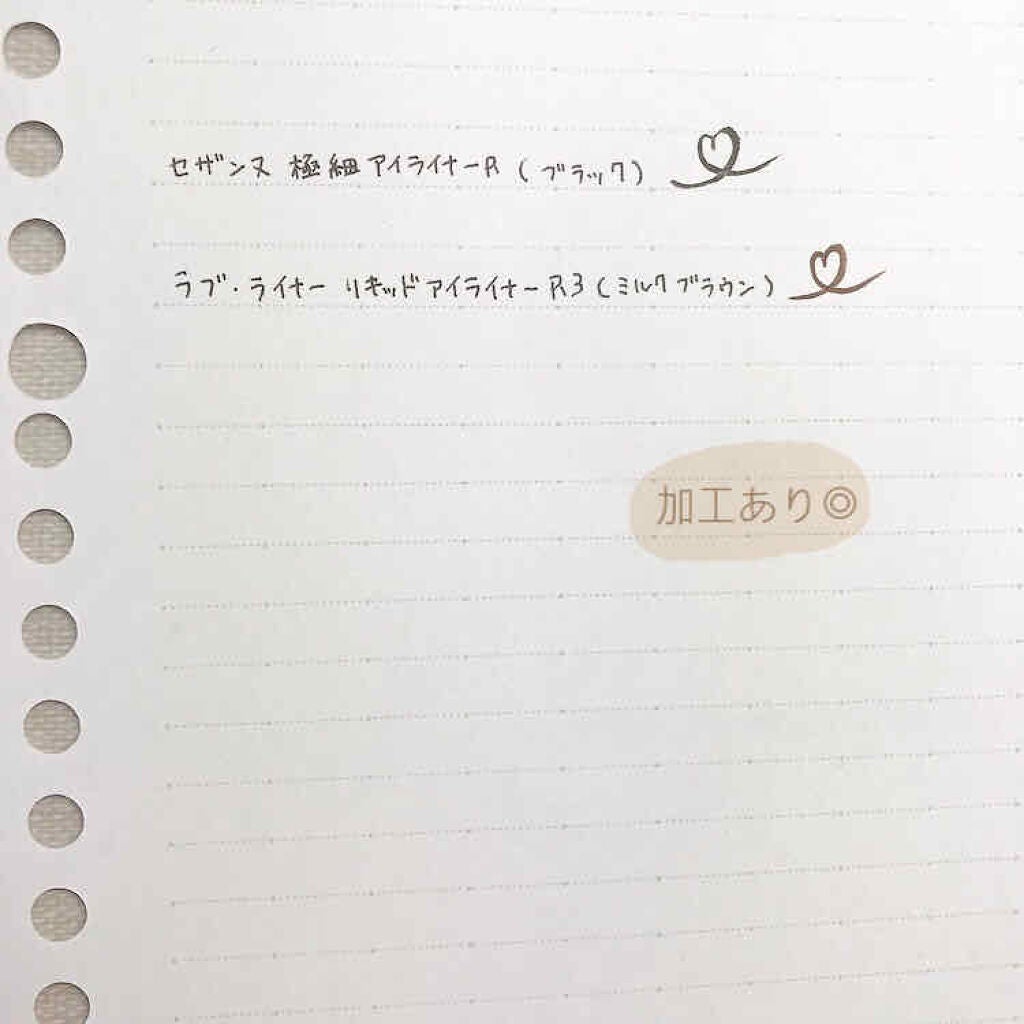 セザンヌ 極細アイライナーR (ブラック)
ラブ・ライナー リキッドアイライナーR3 (ミルクブラウン)
加工あり◎